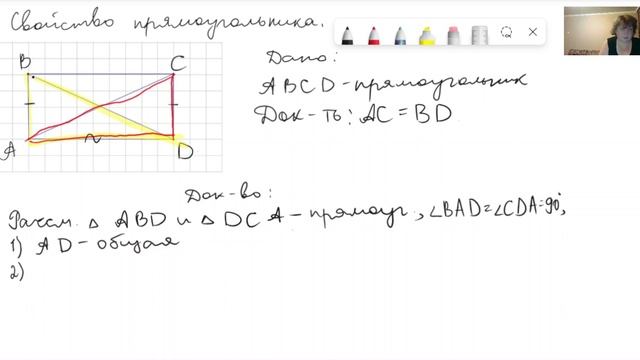 Свойство прямоугольника.
B C
A D
Дано:
ABCD - прямоугольник
Док-ть: AC = BD
Док-во:
Рассм. △ ABD и △ DCA - прямоуг., ∠BAD=∠CDA=90°,
1) AD - общая
2)